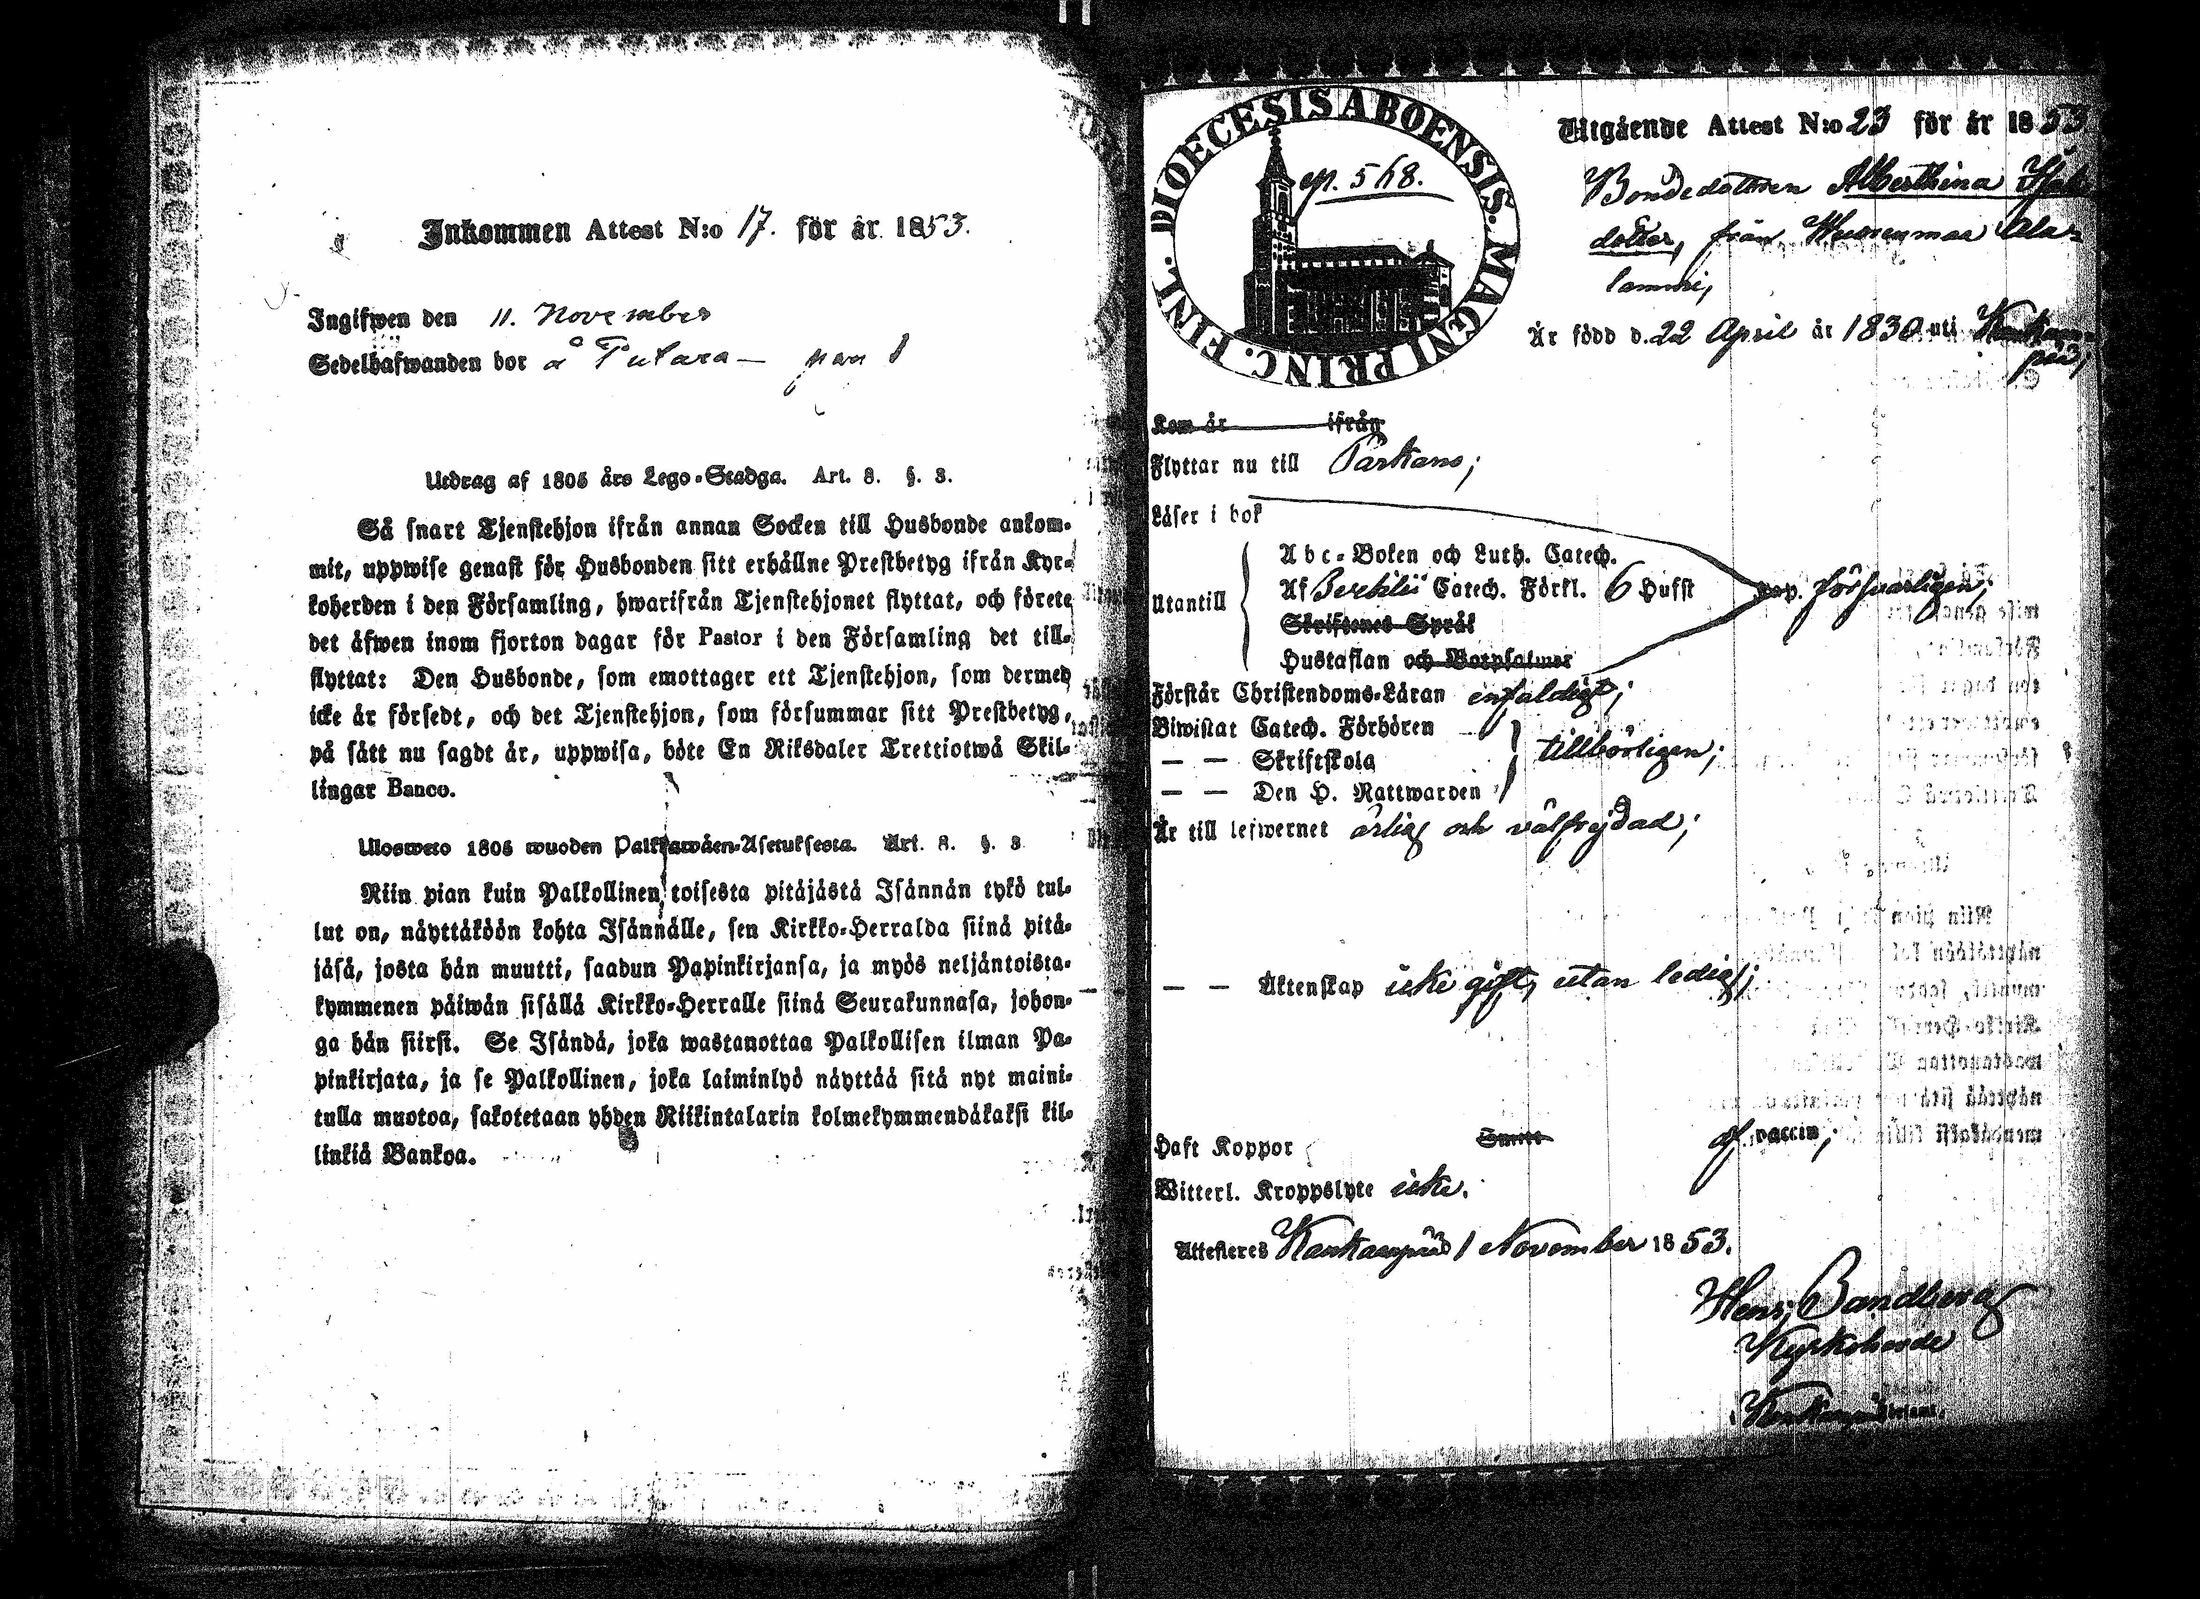 Inkommen Attest N:o 17. för år 1853.
Ingifwen den 11. November
Sedelhafwanden bor å
Utdrag af 1805 års Lego-Stadga. Art. 8. §. 3.
Så snart Tjenstehjon ifrån annan Socken till Husbonde ankom-
mit, uppwise genast för Husbonden sitt erhållne Prestbetyg ifrån Kyr-
koherden i den Församling, hwarifrån Tjenstehjonet flyttat, och förete
det äfwen inom fjorton dagar för Pastor i den Församling det till-
flyttat: Den Husbonde, som emottager ett Tjenstehjon, som dermed
icke är försedt, och det Tjenstehjon, som försummar sitt Prestbetyg,
på sätt nu sagdt är, uppwisa, böte En Riksdaler Trettiotwå Skil-
lingar Banco.
Ulosweto 1805 wuoden Palkkawäen-Asetuksesta. Art. 8. §. 3
Niin pian kuin Palkollinen toisesta pitäjästä Isännän tykö tul-
lut on, näyttäköön kohta Isännälle, sen Kirkko-Herralda siinä pitä-
jäsä, josta hän muutti, saadun Papinkirjansa, ja myös neljäntoista-
kymmenen päiwän sisällä Kirkko-Herralle siinä Seurakunnasa, johon-
ga hän siirsi. Se Isändä, joka wastanottaa Palkollisen ilman Pa-
pinkirjata, ja se Palkollinen, joka laiminlyö näyttää sitä nyt maini-
tulla muotoa, sakotetaan yhden Riikintalarin kolmekymmendäkaksi kil-
linkiä Bankoa.
DIOECESIS ABOENSIS. MAGNI PRINC. FINL.
p. 568.
Utgående Attest N:o 23 för år 1853
Bondedottren Alberthina
dotter, från Ala-
lammi,
Är född d. 22 April år 1830 uti Kankan-
pää,
Kom år ifrån
Flyttar nu till Parkano;
Läser i bok
Utantill
Abc-Boken och Luth. Catech.
Af Catech. Förkl. 6 Hufst
Skriftenes Språk
Hustaflan och Botpsalmer
försvarligen;
Förstår Christendoms-Läran enfaldigt;
Biwistat Catech. Förhören
— — Skriftskola
— — Den H. Nattwarden
tillbörligen;
Är till lefwernet ärlig och välfrejdad;
— — Äktenskap icke gift, utan ledig;
Haft Koppor Smitt af vaccin;
Witterl. Kroppslyte icke.
Attesteres Kankaanpää 1 November 1853.
Henr. Sandberg
Kyrkoherde